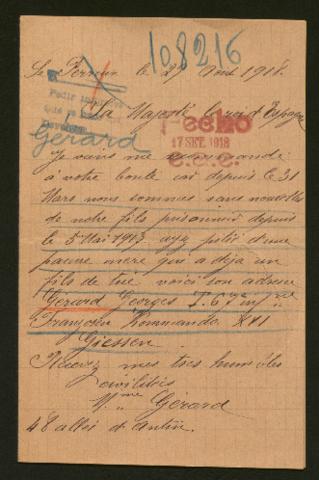 108216
Le Perreux le 27 Août 1918.
Pedir
Gérard
Sa Majesté le roi d'Espagne
17 SET. 1918
Je viens me recommandé
à votre bonté car depuis le 31
Mars nous sommes sans nouvelles
de notre fils prisonnier depuis
le 5 Mai 1917 ayez pitié d'une
pauvre mère qui a déja un
fils de tué voici son adresse
Gérard Georges
Française Kommando X41
Giessen.
Recevez mes tres humbles
civilités
Mme Gérard
48 allée d'Antin.